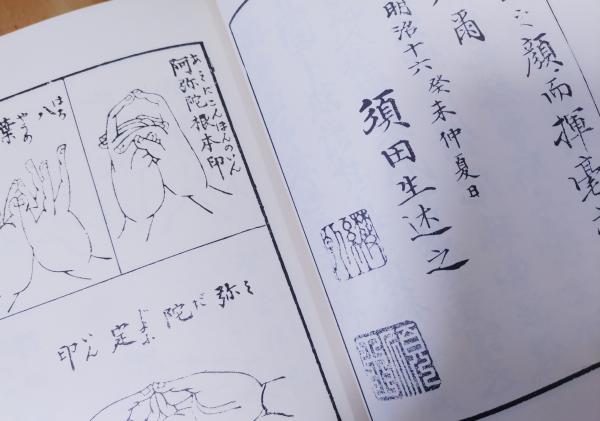 顔而揮毫
爾
明治十六癸未仲夏日
須田生述之
阿弥陀根本印
あみだこんほんのいん
八葉
はち
弥陀定印
み だ
いん